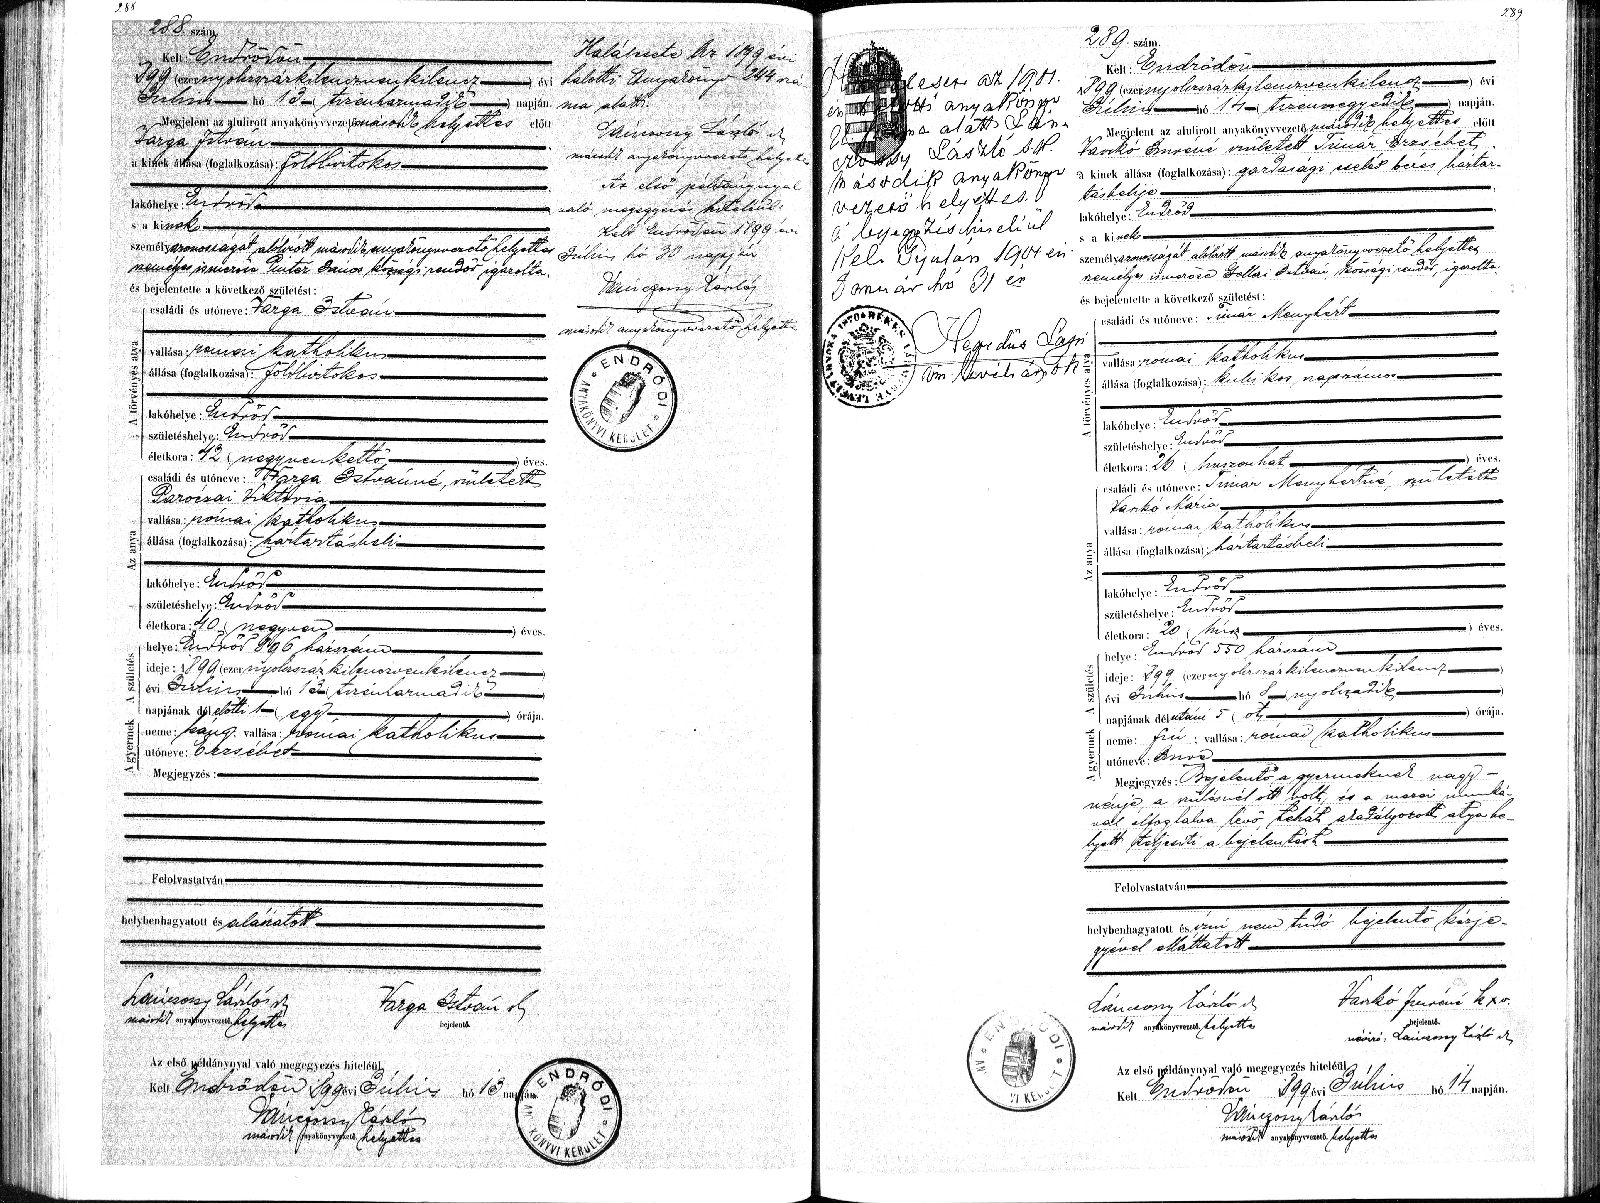 288
288. szám.
Kelt: Endrődön
899 (ezernyolcszázkilenczvenkilencz) évi
Július hó 13 (tizenharmadik) napján.
Megjelent az alulirott anyakönyvvezető második helyettes előtt
Varga István
a kinek állása (foglalkozása): földbirtokos
lakóhelye: Endrőd
s a kinek
személyazonosságát alólirott második anyakönyvvezető helyettes
személyes ismerőse Pintér János községi rendőr igazolta
és bejelentette a következő születést:
A törvényes atya
családi és utóneve: Varga István
vallása: római katholikus
állása (foglalkozása): földbirtokos
lakóhelye: Endrőd
születéshelye: Endrőd
életkora: 42 (negyvenkettő) éves.
Az anya
családi és utóneve: Varga Istvánné, született
Viktória
vallása: római katholikus
állása (foglalkozása): háztartásbeli
lakóhelye: Endrőd
születéshelye: Endrőd
életkora: 40 (negyven) éves.
A születés
helye: Endrőd 896 házszám
ideje: 1899 (ezernyolcszázkilenczvenkilencz
évi Július hó 13 (tizenharmadik
napjának délelőtti 1 (egy) órája.
A gyermek
neme: vallása: római katholikus
utóneve: Erzsébet
Megjegyzés:
Felolvastatván
helybenhagyatott és aláiratott
Lánczossy László h
második anyakönyvvezető, helyettes
Varga István
bejelentő.
Az első példánynyal való megegyezés hiteléül
Kelt Endrődön 899 évi Július hó 13 napján
Lánczossy László
második anyakönyvvezető, helyettes
ENDRŐDI ANYAKÖNYVI KERÜLET
Halálesete az 1899 évi
halotti anyakönyv 244 szá
ma alatt.
Lánczossy László
második anyakönyvvezető helyettes
Az első példánynyal
való megegyezés hiteléül.
Kelt Endrődön 1899 évi
Július hó 30 napján
Lánczossy László
második anyakönyvvezető helyettes
ENDRŐDI ANYAKÖNYVI KERÜLET
289
az 1901.
anyakönyv
alatt Lán-
László s.k.
második anyakönyv
vezető helyettes.
A bejegyzés hiteléül
Kelt Gyulán 1901 évi
Január hó 31 én
Hegedűs
vm. levéltárnok
289. szám.
Kelt: Endrődön
899 (ezernyolcszázkilenczvenkilencz) évi
Július hó 14 (tizennegyedik) napján.
Megjelent az alulirott anyakönyvvezető második helyettes előtt
Vaskó Imréné született Timár Erzsébet,
a kinek állása (foglalkozása): gazdasági cseléd béres háztar-
tásbelije
lakóhelye: Endrőd
s a kinek
személyazonosságát alólirott második anyakönyvvezető helyettes
személyes ismerőse István községi rendőr, igazolta
és bejelentette a következő születést:
A törvényes atya
családi és utóneve: Timár Menyhért
vallása: római katholikus
állása (foglalkozása): kubikos, napszámos
lakóhelye: Endrőd
születéshelye: Endrőd
életkora: 26 (huszonhat) éves.
Az anya
családi és utóneve: Timár Menyhértné, született
Vaskó Mária
vallása: római katholikus
állása (foglalkozása): háztartásbeli
lakóhelye: Endrőd
születéshelye: Endrőd
életkora: 20 (húsz) éves.
A születés
helye: Endrőd 550 házszám
ideje: 899 (ezernyolcszázkilenczvenkilencz
évi Július hó 8 (nyolczadik
napjának délutáni 5 (öt) órája.
A gyermek
neme: fiú; vallása: római katholikus
utóneve: Imre
Megjegyzés: Bejelentő a gyermeknek nagy-
nénje, a szülésnél ott volt, és a mezei munká-
val elfoglalva levő tehát akadályozott atya he-
lyett teljesíti a bejelentést
Felolvastatván
helybenhagyatott és írni nem tudó bejelentő kézje-
gyével elláttatott
Lánczossy László
második anyakönyvvezető, helyettes
Vaskó Imréné k x v.
bejelentő.
névíró: Lánczossy László
Az első példánynyal való megegyezés hiteléül
Kelt Endrődön 899 évi Július hó 14 napján.
Lánczossy László
második anyakönyvvezető, helyettes